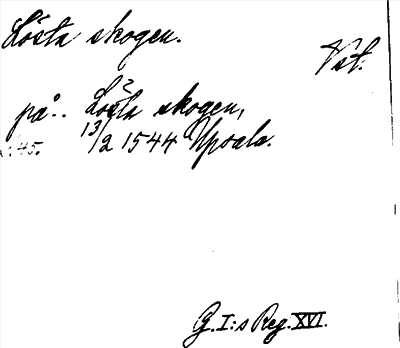 Lösta skogen.
Vstl.
på.. Lösta skogen,
13/2 1544 Upsala.
G. I:s Reg. XVI.